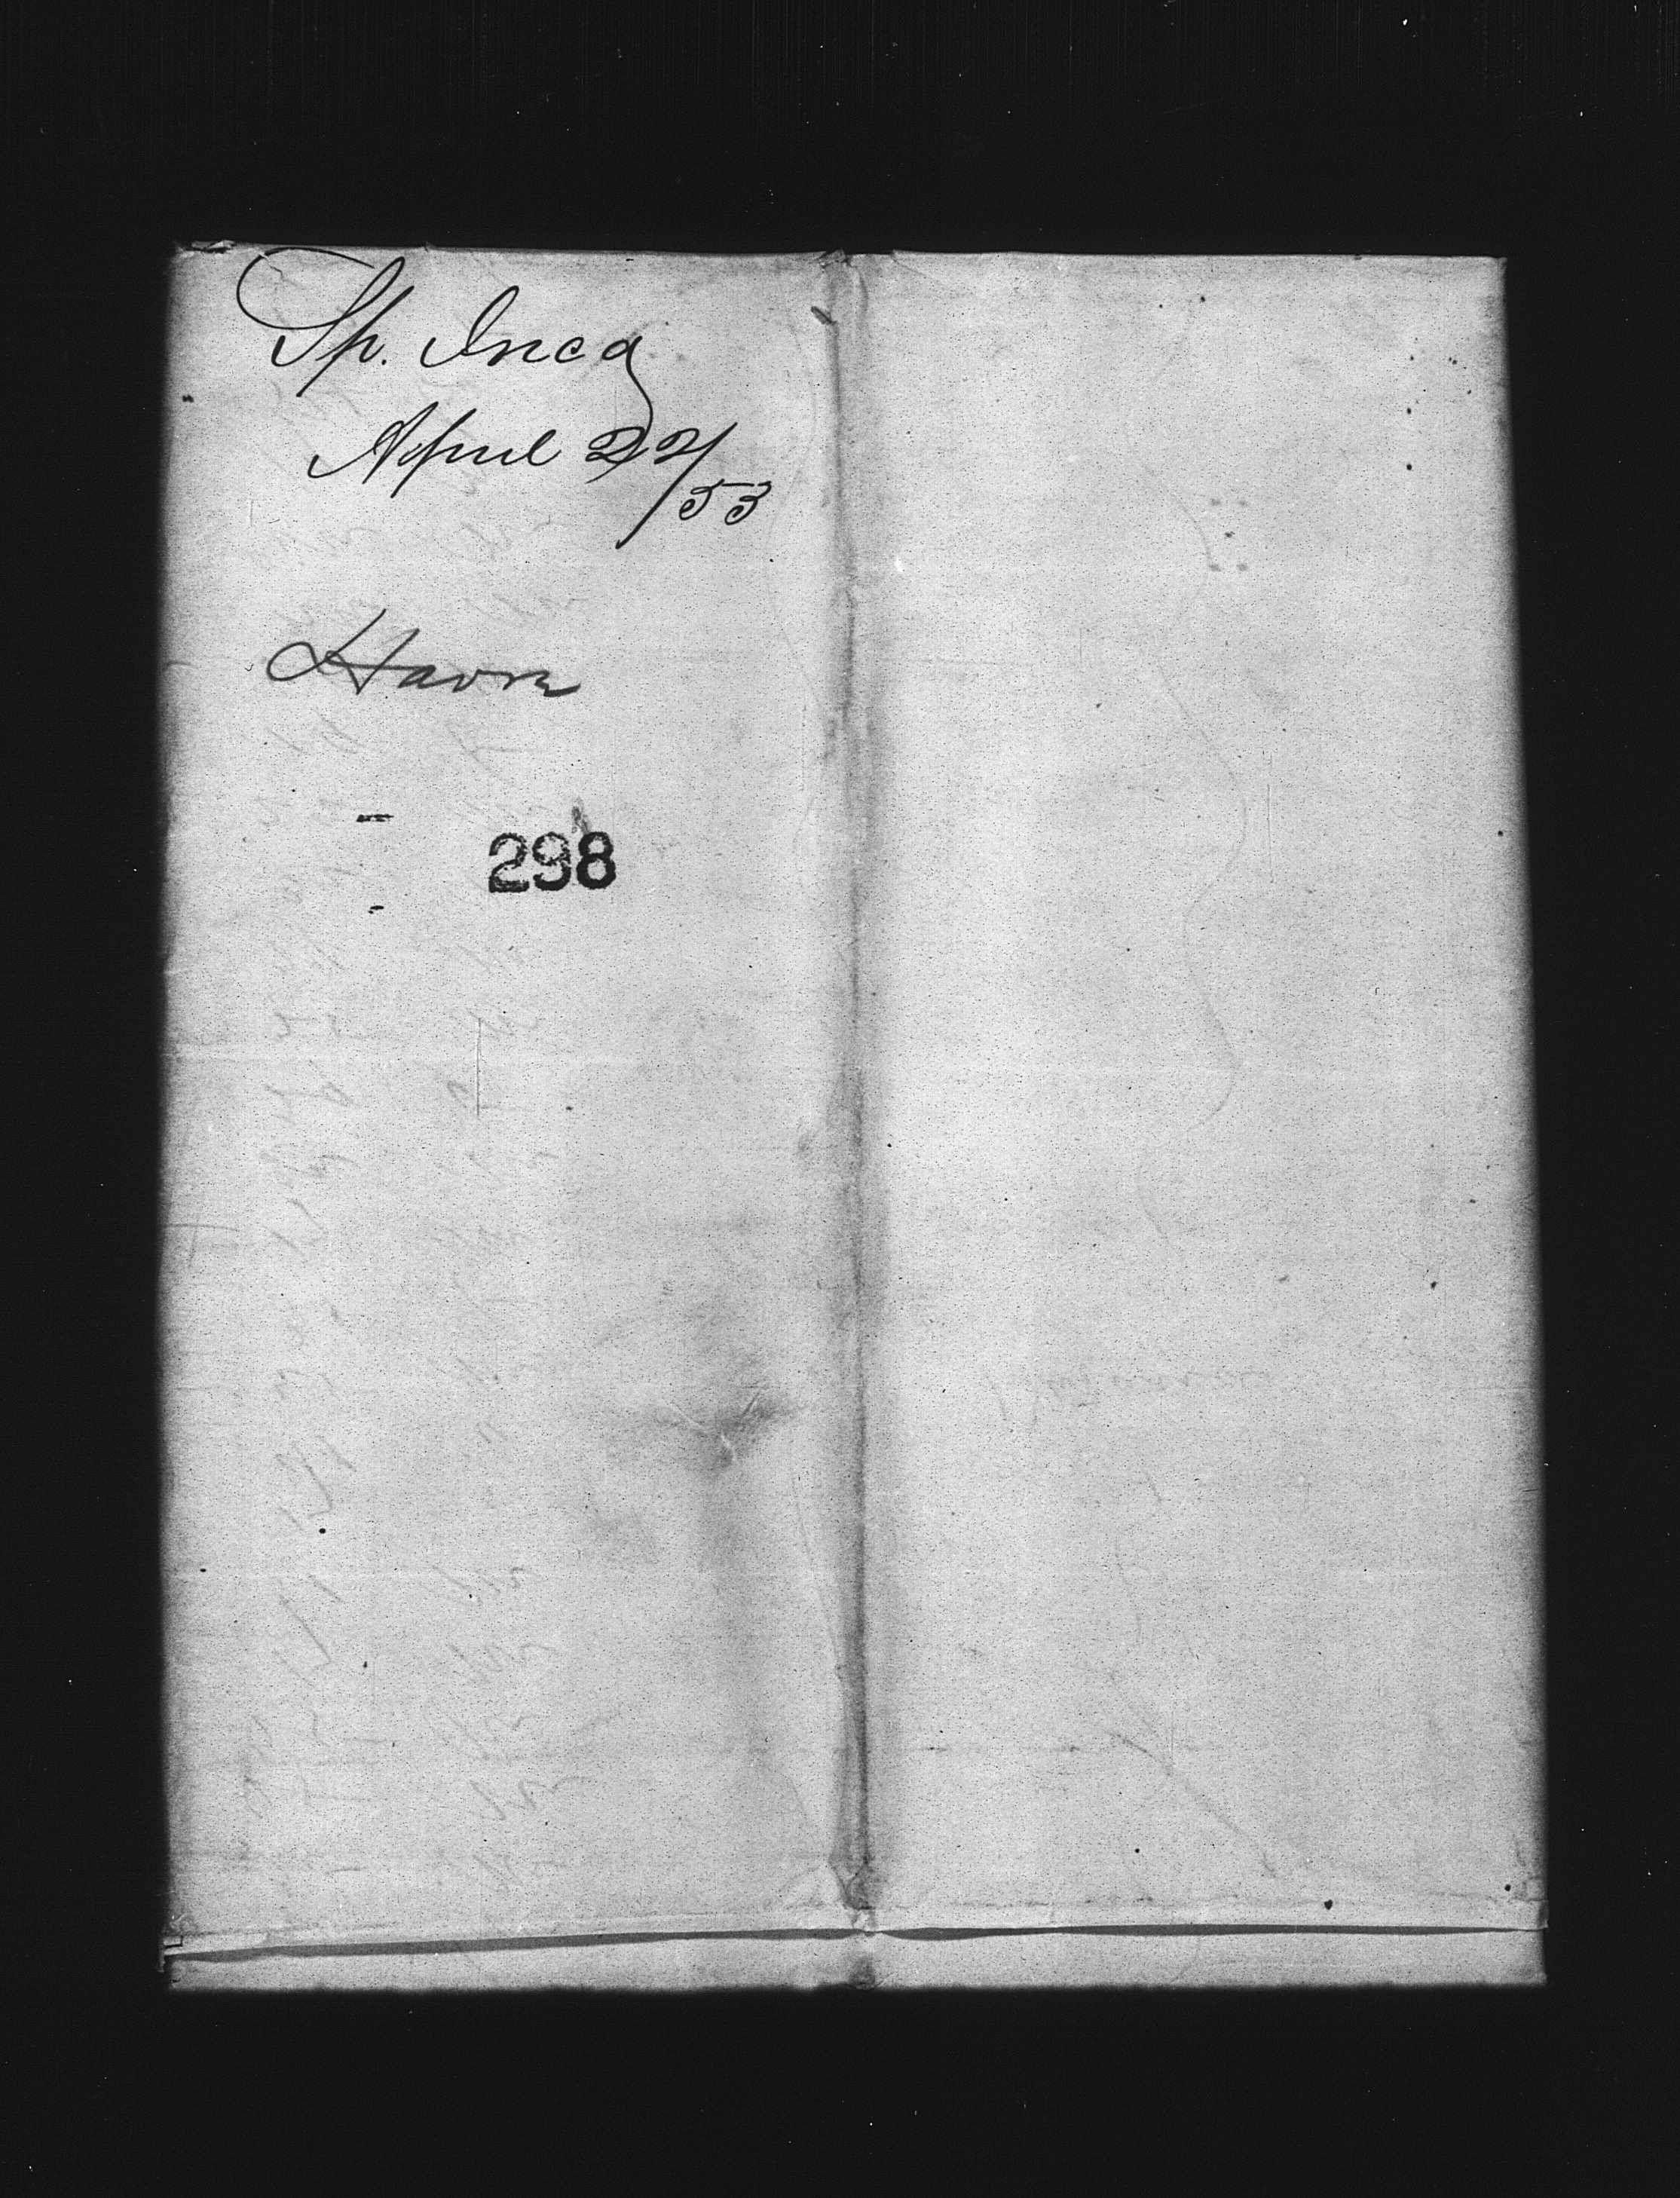 Sh. Inca
April 22/53
Havre
298